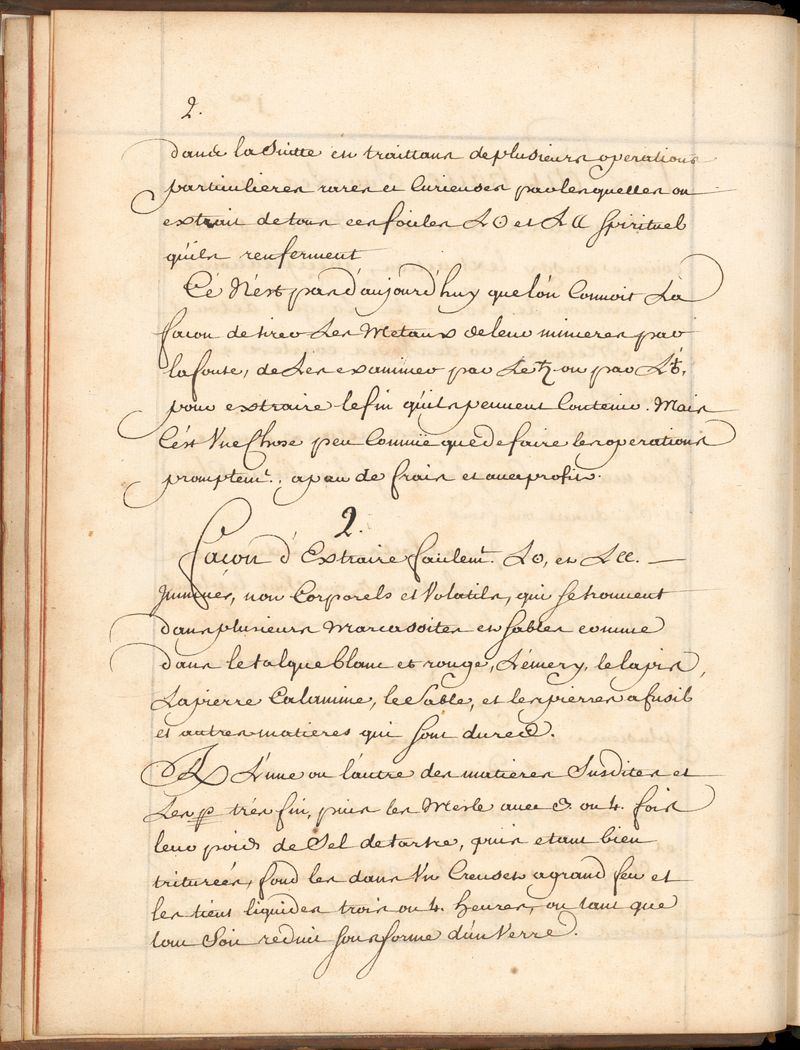 2.
dans la Suitte en traittans de plusieurs operations
particulieres rares et Curieuses par lesquelles on
extrait de tous ces soufres L☉ et L☾ Spirituel
qu'ils renferment
Ce N'est pas d'aujourd'huy que lón Connoit La
facon de tirer Les Metaux de leur minieres par
la fonte, de Les examiner par Le ♄ ou par L♁,
pour extraire le fin qu'ils peuvent Contenir. Mais
C'est Vne Chose peu Connüe que de faire les operations
promptemt., a peu de frais et avec profit.
2.
Facon d'Extraire facilemt. L☉, et L☾.
Immures, non Corporels et Volatils, qui se trouvent
dans plusieurs Marcassites et Sables comme
dans le talque blanc et rouge, L'émery, le lapis,
La pierre Calamine, le Sable, et les pierres a fusil
et autres matieres qui sont dures.
℞ L'une ou l'autre des matieres Susdites et
Les p trés fin, puis les Mesle avec 3. ou 4. fois
leur poids de Sel de tartre, puis etant bien
triturées, fond les dans Vn Creuset a grand feu et
les tient liquides trois ou 4. heures, ou tant que
tout Soit reduit sous forme d'ún Verre.